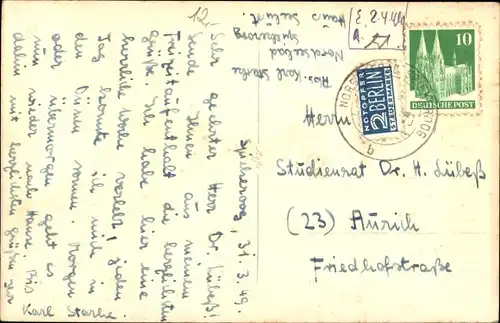 12.-
[E. 2.4.49
Abs. Karl Starke
Nordseebad
Spiekeroog
Haus Seelust
10
DEUTSCHE POST
NOTOPFER
2 BERLIN
STEUERMARKE
NORDSEEBAD SPIEKEROOG
Herrn
Studienrat Dr. H. Lübeß
(23) Aurich
Friedhofstraße
Spiekeroog, 31.3.49.
Sehr geehrter Herr Dr. Lübeß!
Sende Ihnen aus meinem
Freizeitaufenthalt die herzlichsten
Grüße. Ich habe hier eine
herrliche Woche verlebt, jeden
Tag konnte ich mich in
den Dünen sonnen. Morgen
oder übermorgen geht es
nun wieder nach Hause. Bis
dahin mit herzlichsten Grüßen Ihr
Karl Starke.